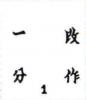 改作
一分
1